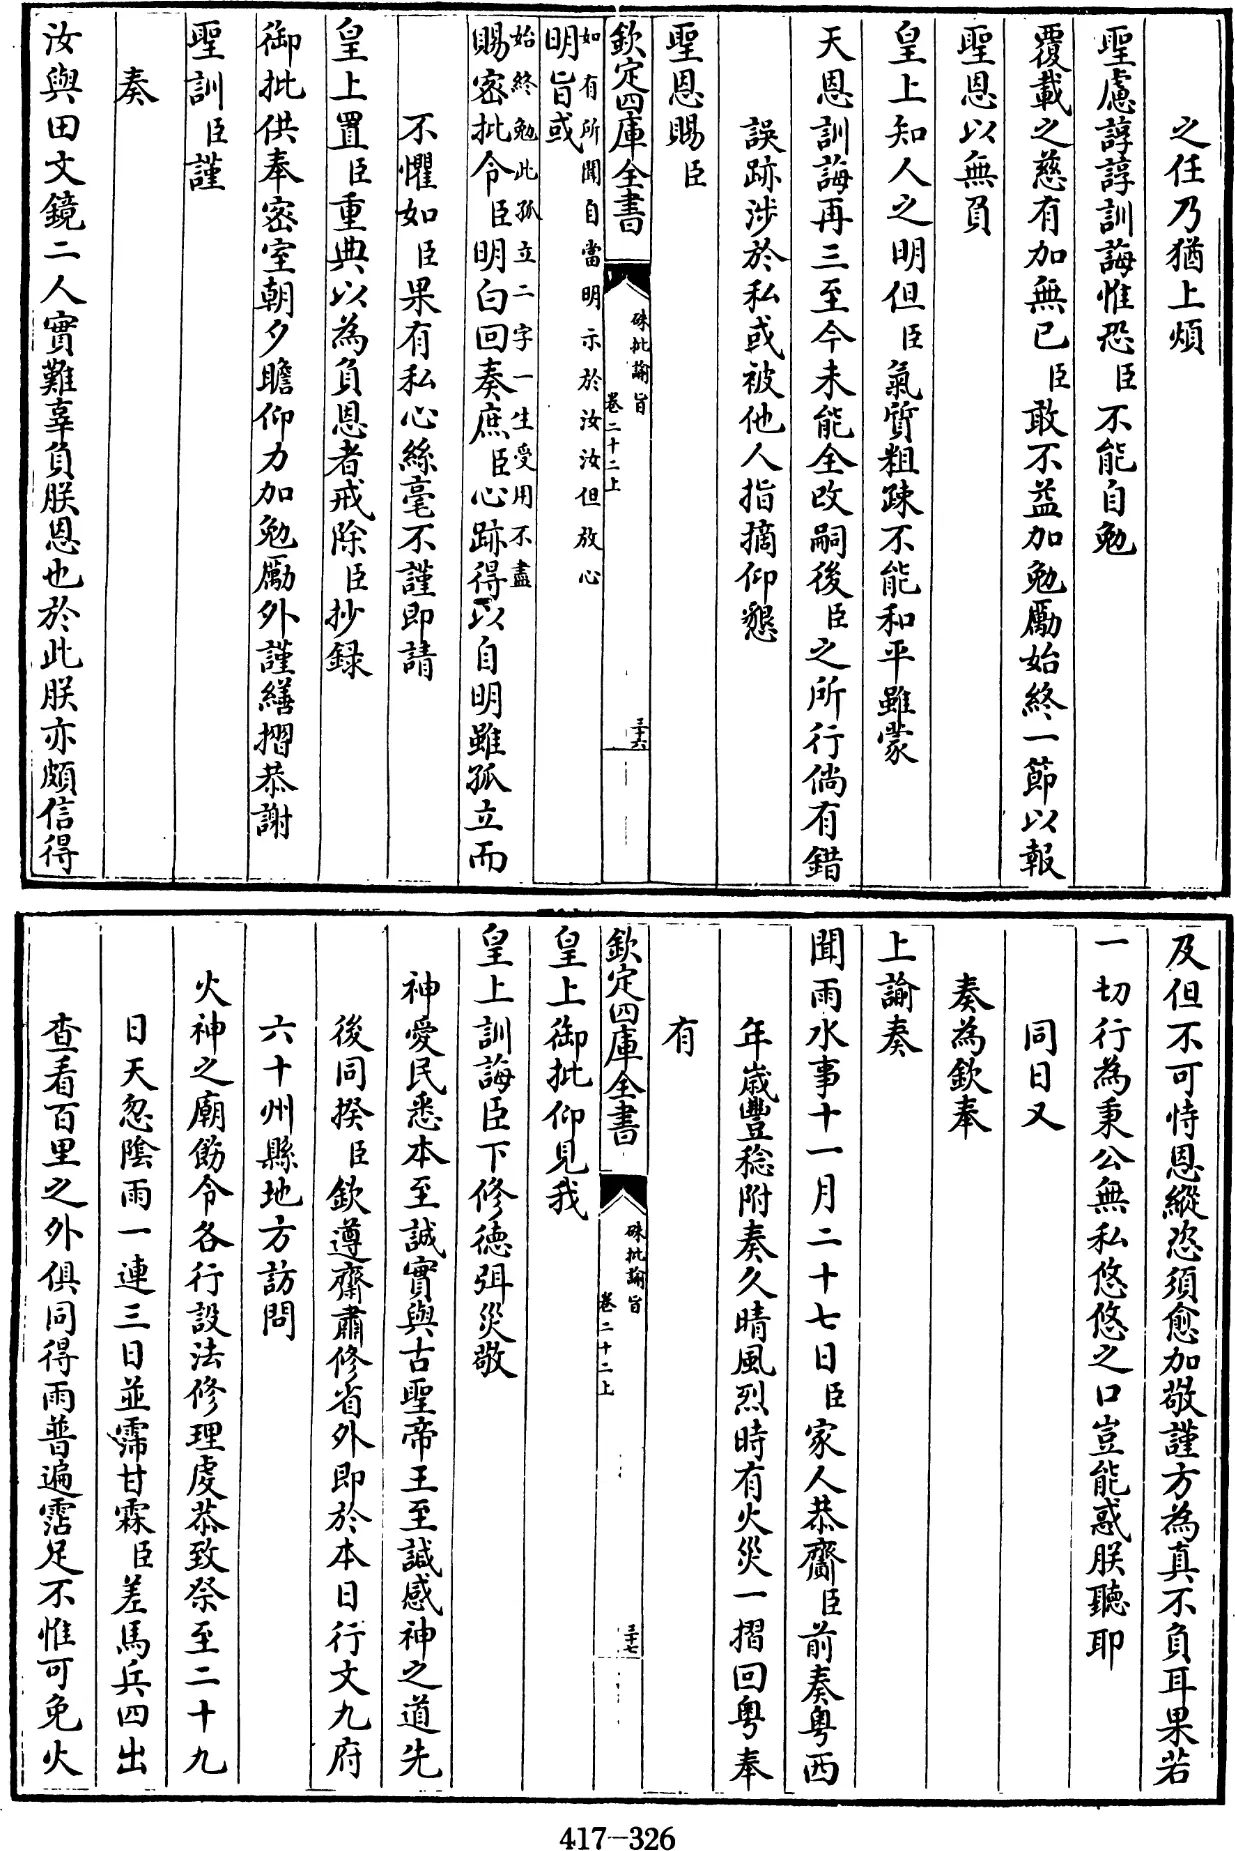 之任乃猶上煩
聖慮諄諄訓誨惟恐臣不能自勉
覆載之慈有加無已臣敢不益加勉勵始終一節以報
聖恩以無負
皇上知人之明但臣氣質粗疎不能和平雖蒙
天恩訓誨再三至今未能全改嗣後臣之所行倘有錯
誤跡涉於私或被他人指摘仰懇
聖恩賜臣
欽定四庫全書
硃批諭旨
卷二十二上
三十六
如有所聞自當明示於汝汝但放心
明旨或
始終勉此孤立二字一生受用不盡
賜密批令臣明白回奏庶臣心跡得以自明雖孤立而
不懼如臣果有私心絲毫不謹即請
皇上置臣重典以為負恩者戒除臣抄録
御批供奉密室朝夕瞻仰力加勉勵外謹繕摺恭謝
聖訓臣謹
奏
汝與田文鏡二人實難辜負朕恩也於此朕亦頗信得
及但不可恃恩縱恣須愈加敬謹方為真不負耳果若
一切行為秉公無私悠悠之口豈能惑朕聽耶
同日又
奏為欽奉
上諭奏
聞雨水事十一月二十七日臣家人恭齎臣前奏粵西
年嵗豐稔附奏久晴風烈時有火災一摺回粵奉
有
欽定四庫全書
硃批諭旨
卷二十二上
三十七
皇上御批仰見我
皇上訓誨臣下修德弭災敬
神愛民悉本至誠實與古聖帝王至諴感神之道先
後同揆臣欽遵齋肅修省外即於本日行文九府
六十州縣地方訪問
火神之廟飭令各行設法修理虔恭致祭至二十九
日天忽陰雨一連三日並霈甘霖臣差馬兵四出
查看百里之外俱同得雨普遍霑足不惟可免火
417-326